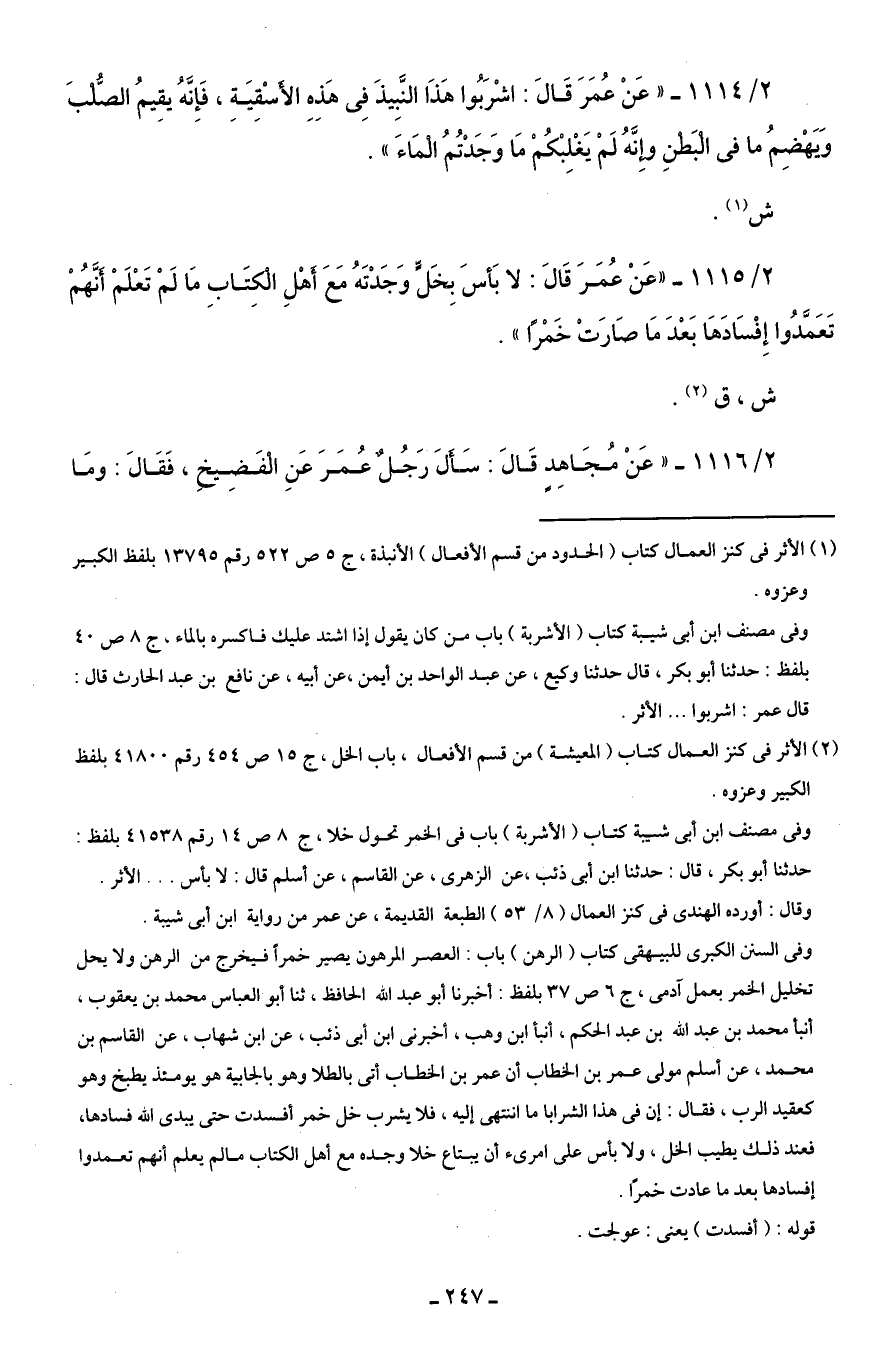 ٢/ ١١١٤ ـ « عَنْ عُمَرَ قَالَ : اشْرَبُوا هَذَا النَّبِيذَ فِى هَذِهِ الأَسْقِيَةِ ، فَإِنَّهُ يقِيمُ الصُّلْبَ
وَيَهْضِمُ ما فى الْبَطْنِ وإِنَّهُ لَمْ يَغْلِبْكُمْ مَا وَجَدْتُمُ الْمَاءَ » .
ش (١) .
٢/ ١١١٥ ـ «عَنْ عُمَرَ قَالَ : لا بَأْسَ بِخَلٍّ وَجَدْتَهُ مَعَ أَهْلِ الْكِتَابِ مَا لَمْ تَعْلَمْ أَنَّهُمْ
تَعَمَّدُوا إِفْسَادَهَا بَعْدَ مَا صَارَتْ خَمْرًا » .
ش ، ق (٢) .
٢/ ١١١٦ ـ « عَنْ مُجَاهِدٍ قَالَ : سَأَلَ رَجُلٌ عُمَرَ عَنِ الْفَضِيخِ ، فَقَالَ : ومَا
(١) الأثر فى كنز العمال كتاب ( الحدود من قسم الأفعال ) الأنبذة ، ج ٥ ص ٥٢٢ رقم ١٣٧٩٥ بلفظ الكبير
وعزوه .
وفى مصنف ابن أبى شيبة كتاب ( الأشربة ) باب من كان يقول إذا اشتد عليك فاكسره بالماء ، ج ٨ ص ٤٠
بلفظ : حدثنا أبو بكر ، قال حدثنا وكيع ، عن عبد الواحد بن أيمن ،عن أبيه ، عن نافع بن عبد الحارث قال :
قال عمر : اشربوا ... الأثر .
(٢) الأثر فى كنز العمال كتاب ( المعيشة ) من قسم الأفعال ، باب الخل ، ج ١٥ ص ٤٥٤ رقم ٤١٨٠٠ بلفظ
الكبير وعزوه .
وفى مصنف ابن أبى شيبة كتاب ( الأشربة ) باب فى الخمر تحول خلا ، ج ٨ ص ١٤ رقم ٤١٥٣٨ بلفظ :
حدثنا أبو بكر ، قال : حدثنا ابن أبى ذئب ،عن الزهرى ، عن القاسم ، عن أسلم قال : لا بأس . . . الأثر .
وقال : أورده الهندى فى كنز العمال ( ٨/ ٥٣ ) الطبعة القديمة ، عن عمر من رواية ابن أبى شيبة .
وفى السنن الكبرى للبيهقى كتاب ( الرهن ) باب : العصر المرهون يصير خمراً فيخرج من الرهن ولا يحل
تخليل الخمر بعمل آدمى ، ج ٦ ص ٣٧ بلفظ : أخبرنا أبو عبد الله الحافظ ، ثنا أبو العباس محمد بن يعقوب ،
أنبأ محمد بن عبد الله بن عبد الحكم ، أنبأ ابن وهب ، أخبرنى ابن أبى ذئب ، عن ابن شهاب ، عن القاسم بن
محمد ، عن أسلم مولى عمر بن الخطاب أن عمر بن الخطاب أتى بالطلا وهو بالجابية هو يومئذ يطبخ وهو
كعقيد الرب ، فقال : إن فى هذا الشرابا ما انتهى إليه ، فلا يشرب خل خمر أفسدت حتى يبدى الله فسادها،
فعند ذلك يطيب الخل ، ولا بأس على امرىء أن يبتاع خلا وجده مع أهل الكتاب مالم يعلم أنهم تعمدوا
إفسادها بعد ما عادت خمرًا .
قوله : ( أفسدت ) يعنى : عولجت .
ـ ٢٤٧ ـ